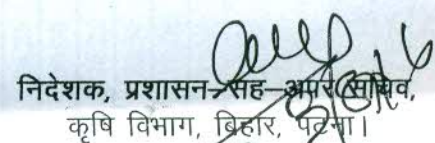 निदेशक, प्रशासन-सह-अपर सचिव,
कृषि विभाग, बिहार, पटना।